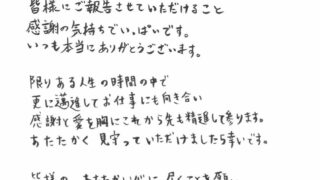 皆様にご報告させていただけること
感謝の気持ちでいっぱいです。
いつも本当にありがとうございます。
限りある人生の時間の中で
更に邁進してお仕事にも向き合い
感謝と愛を胸にこれから先も精進して参ります。
あたたかく見守っていただけましたら幸いです。